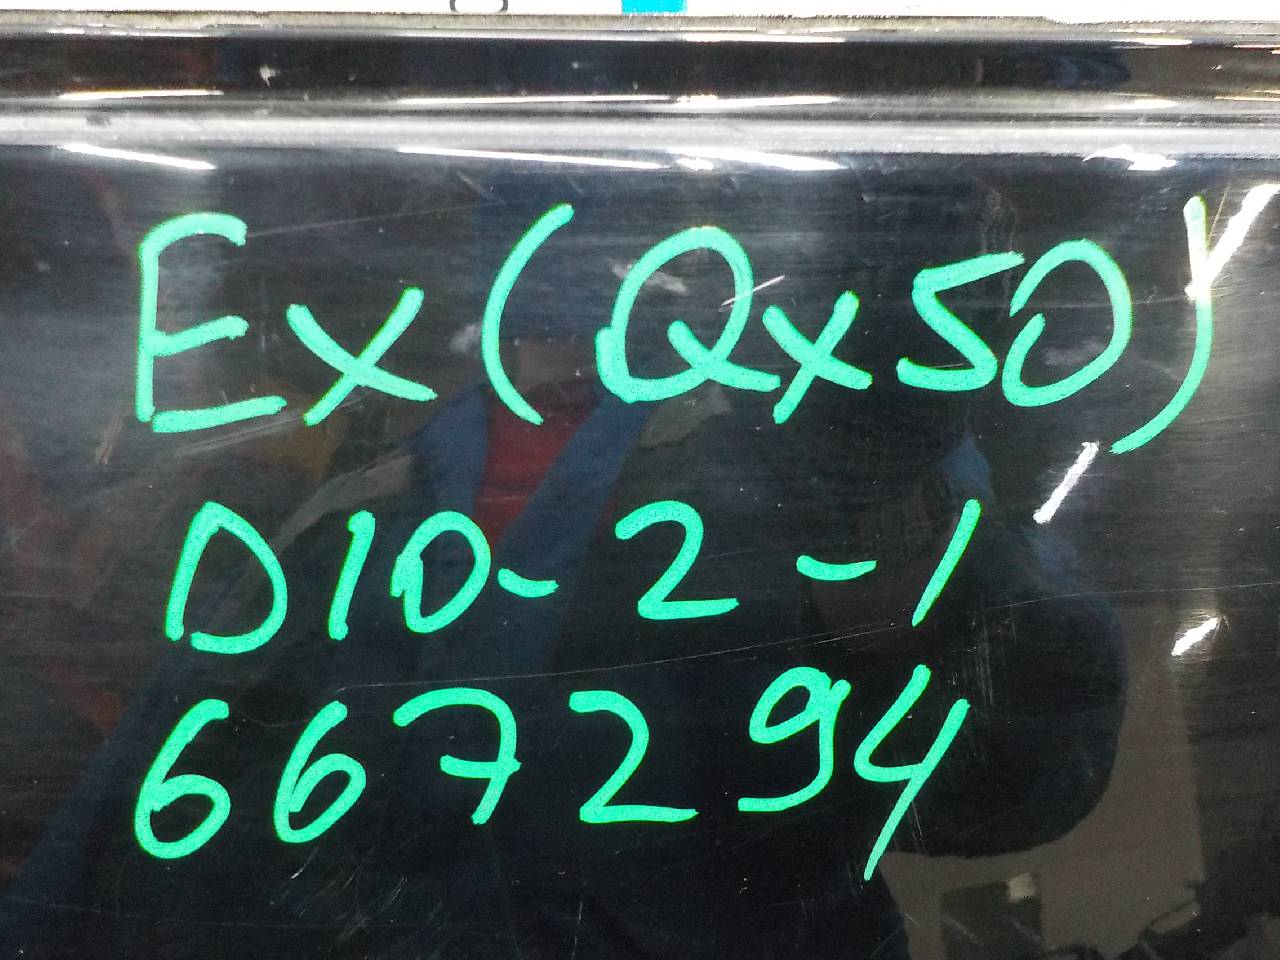 Ex (Qx50)
D10-2-1
667294